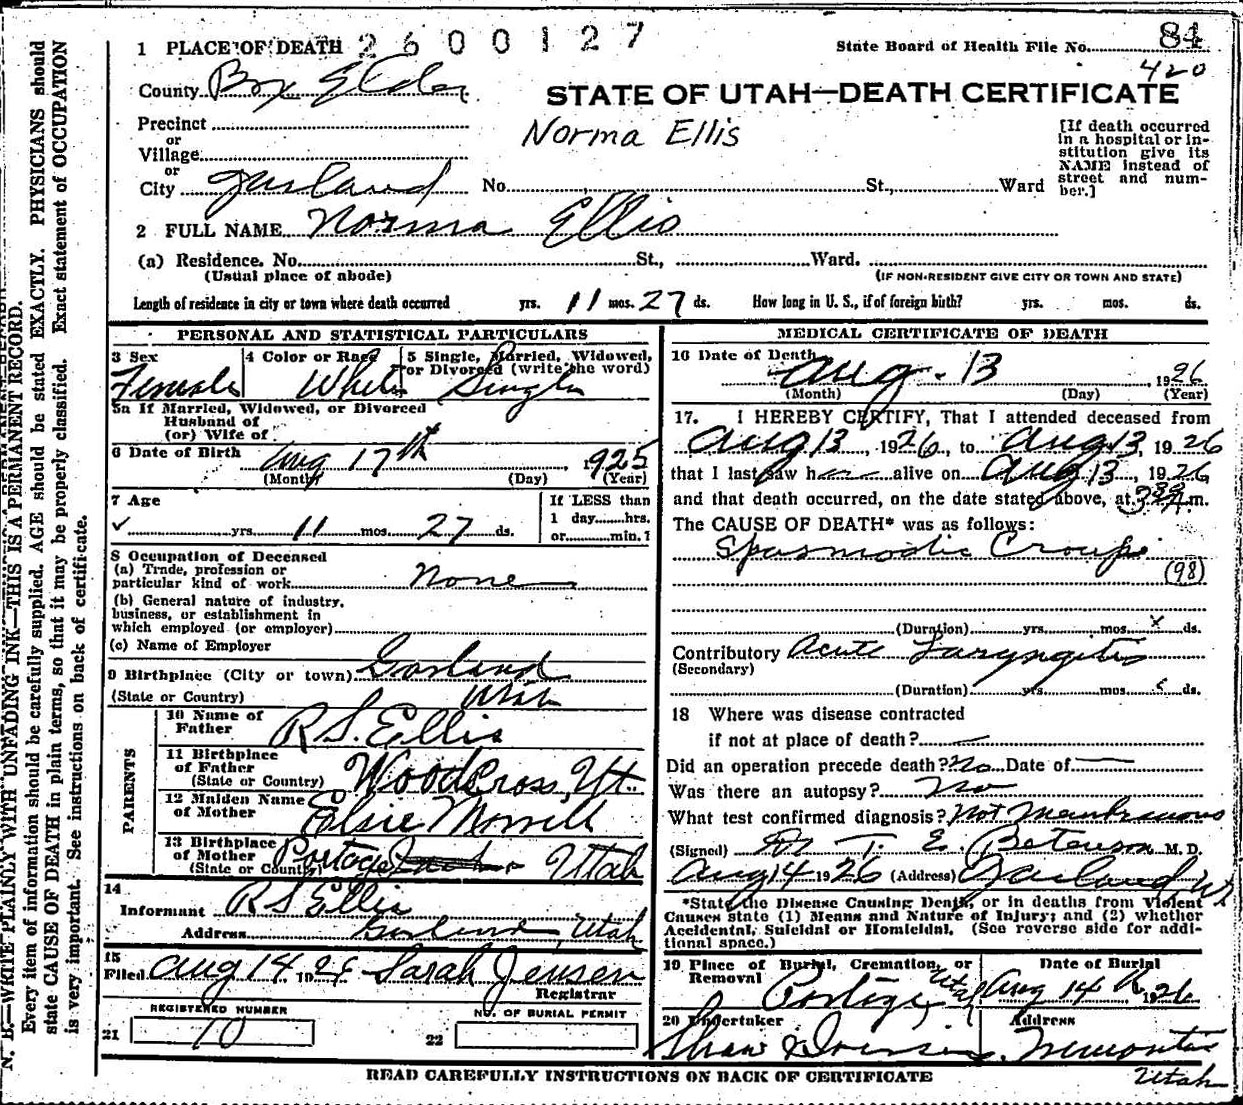 1 PLACE OF DEATH 2600127
State Board of Health File No. 84
420
County Box Elder
STATE OF UTAH—DEATH CERTIFICATE
Precinct
or
Village
or
City Garland No. St., Ward
Norma Ellis
[If death occurred
in a hospital or in-
stitution give its
NAME instead of
street and num-
ber.]
2 FULL NAME Norma Ellis
(a) Residence. No. St., Ward.
(Usual place of abode)
(IF NON-RESIDENT GIVE CITY OR TOWN AND STATE)
Length of residence in city or town where death occurred yrs. 11 mos. 27 ds. How long in U. S., if of foreign birth? yrs. mos. ds.
PERSONAL AND STATISTICAL PARTICULARS
3 Sex
Female
4 Color or Race
White
5 Single, Married, Widowed,
or Divorced (write the word)
Single
5a If Married, Widowed, or Divorced
Husband of
(or) Wife of
6 Date of Birth Aug 17th, 1925
(Month) (Day) (Year)
7 Age
yrs. 11 mos. 27 ds.
If LESS than
1 day......hrs.
or......min.?
8 Occupation of Deceased
(a) Trade, profession or
particular kind of work None
(b) General nature of industry,
business, or establishment in
which employed (or employer)
(c) Name of Employer
9 Birthplace (City or town) Garland
(State or Country) Utah
PARENTS
10 Name of
Father R S. Ellis
11 Birthplace
of Father
(State or Country) Woodscross, Ut.
12 Maiden Name
of Mother Elsie Morrell
13 Birthplace
of Mother
(State or Country) Portage Utah
14
Informant R S Ellis
Address Garland, Utah
15
Filed Aug 14 1926 Sarah Jensen
Registrar
REGISTERED NUMBER
21 70
NO. OF BURIAL PERMIT
22
MEDICAL CERTIFICATE OF DEATH
16 Date of Death
Aug. 13, 1926
(Month) (Day) (Year)
17. I HEREBY CERTIFY, That I attended deceased from
Aug 13, 1926, to Aug 13, 1926
that I last saw her alive on Aug 13, 1926
and that death occurred, on the date stated above, at 3 A.m.
The CAUSE OF DEATH* was as follows:
Spasmodic Croup
(98)
(Duration) yrs. mos. ds.
Contributory Acute Laryngitis
(Secondary)
(Duration) yrs. mos. ds.
18 Where was disease contracted
if not at place of death? —
Did an operation precede death? No Date of —
Was there an autopsy? No
What test confirmed diagnosis? Not Membranous
(Signed) Dr T. E. Betenson M. D.
Aug 14 1926 (Address) Garland, Ut
*State the Disease Causing Death, or in deaths from Violent
Causes state (1) Means and Nature of Injury; and (2) whether
Accidental, Suicidal or Homicidal. (See reverse side for addi-
tional space.)
19 Place of Burial, Cremation, or
Removal
Portage, Utah
Date of Burial
Aug 14th 1926
20 Undertaker
Shaw & Iverson.
Address
Tremonton
Utah
READ CAREFULLY INSTRUCTIONS ON BACK OF CERTIFICATE
N. B.—WRITE PLAINLY WITH UNFADING INK—THIS IS A PERMANENT RECORD.
Every item of information should be carefully supplied. AGE should be stated EXACTLY. PHYSICIANS should
state CAUSE OF DEATH in plain terms, so that it may be properly classified. Exact statement of OCCUPATION
is very important. See instructions on back of certificate.